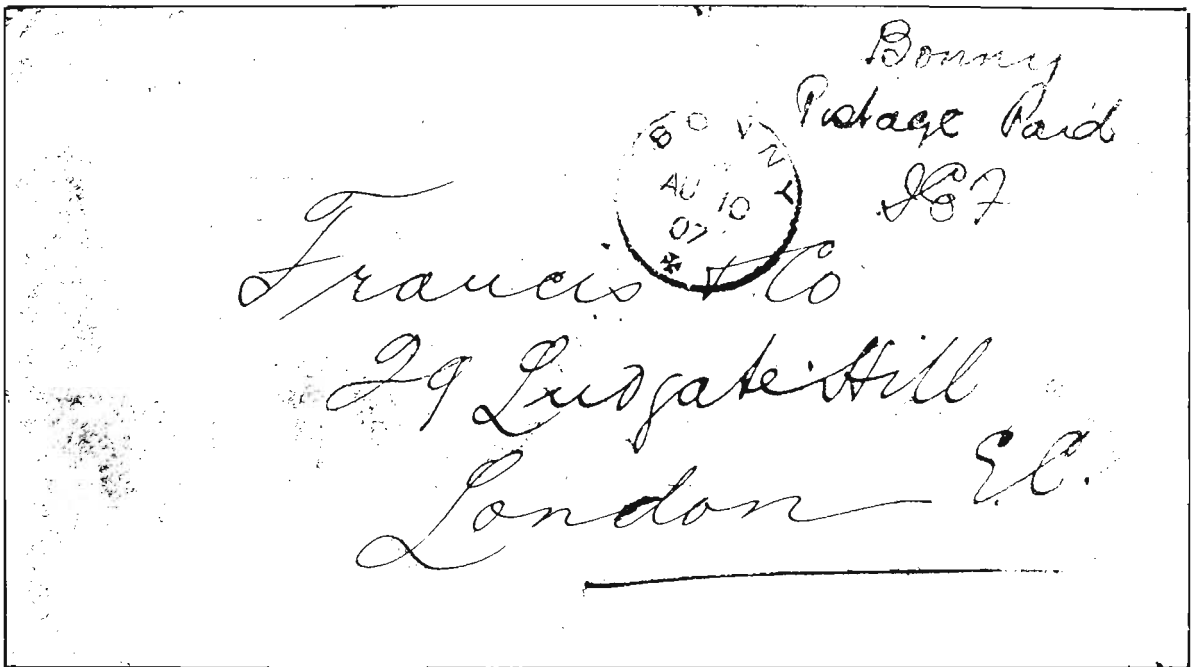 Bonny
Postage Paid
BONNY
AU 10
07
Francis & Co
29 Ludgate Hill
London E.C.